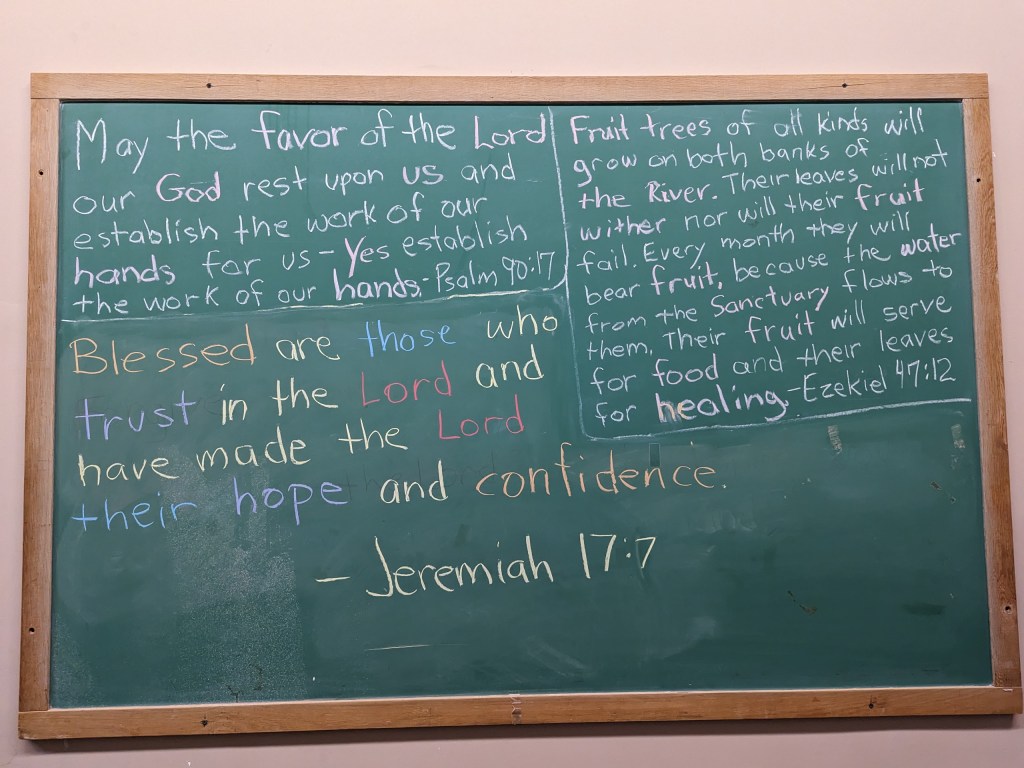 May the favor of the Lord
our God rest upon us and
establish the work of our
hands for us - Yes establish
the work of our hands. - Psalm 90:17
Fruit trees of all kinds will
grow on both banks of
the River. Their leaves will not
wither nor will their fruit
fail. Every month they will
bear fruit, because the water
from the Sanctuary flows to
them. Their fruit will serve
for food and their leaves
for healing. - Ezekiel 47:12
Blessed are those who
trust in the Lord and
have made the Lord
their hope and confidence.
- Jeremiah 17:7